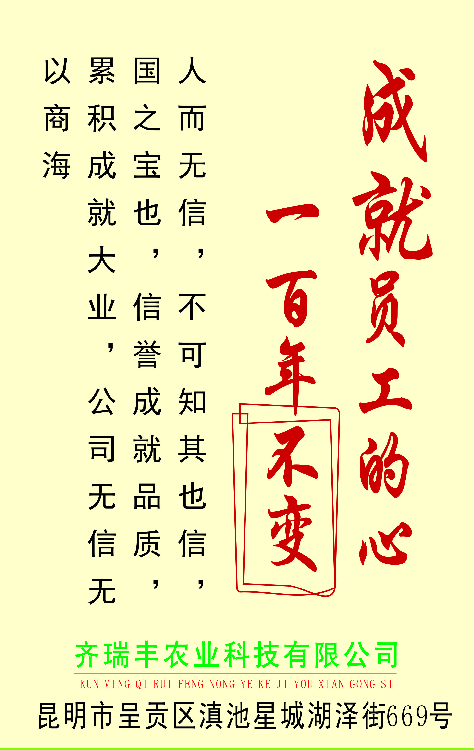 成就员工的心
一百年不变
人而无信，不可知其也信，
国之宝也，信誉成就品质，
累积成就大业，公司无信无
以商海
齐瑞丰农业科技有限公司
KUN MING QI RUI FENG NONG YE KE JI YOU XIAN GONG SI
昆明市呈贡区滇池星城湖泽街669号